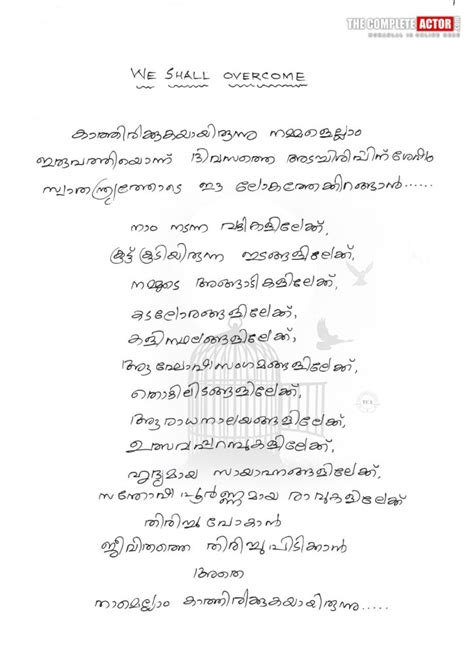 THE COMPLETE ACTOR.com
MOHANLAL IN ONLINE NOOK
WE SHALL OVERCOME
കാത്തിരിക്കുകയായിരുന്നു നമ്മളെല്ലാം
ഇരുപത്തിയൊന്ന് ദിവസത്തെ അടച്ചിരിപ്പിന് ശേഷം
സ്വാതന്ത്ര്യത്തോടെ ഈ ലോകത്തേക്കിറങ്ങാൻ......
നാം നടന്ന വഴികളിലേക്ക്,
കൂട്ട് കൂടിയിരുന്ന ഇടങ്ങളിലേക്ക്,
നമ്മുടെ അങ്ങാടികളിലേക്ക്,
കടലോരങ്ങളിലേക്ക്,
കളിസ്ഥലങ്ങളിലേക്ക്,
ആഘോഷസംഗമങ്ങളിലേക്ക്,
തൊഴിലിടങ്ങളിലേക്ക്,
ആരാധനാലയങ്ങളിലേക്ക്,
ഉത്സവപ്പറമ്പുകളിലേക്ക്,
ഹൃദ്യമായ സായാഹ്നങ്ങളിലേക്ക്,
സന്തോഷ പൂർണ്ണമായ രാവുകളിലേക്ക്
തിരിച്ചു പോകാൻ
ജീവിതത്തെ തിരിച്ചു പിടിക്കാൻ
അതെ
നാമെല്ലാം കാത്തിരിക്കുകയായിരുന്നു.....